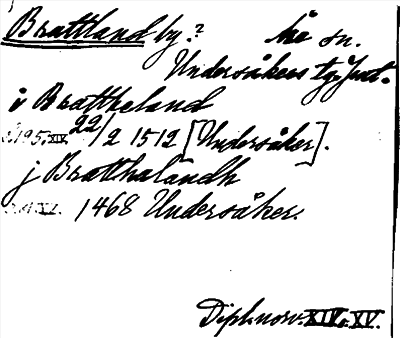 Brattland by? Åre sn.
Undersåkers tg. Jmtl.
i Brattheland
s. 195. XIV. 22/2 1512 [Undersåker].
j Bratthalandh
XV. 1468 Undersåker.
Dipl. norv. XIV. XV.